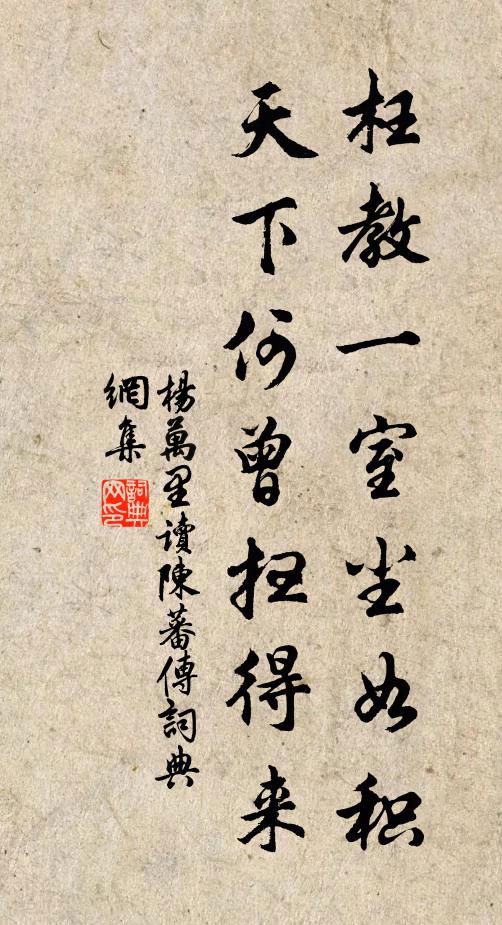 枉教一室尘如积
天下何曾扫得来
楊萬里讀陳蕃傳詞典
網集
詞典
网印